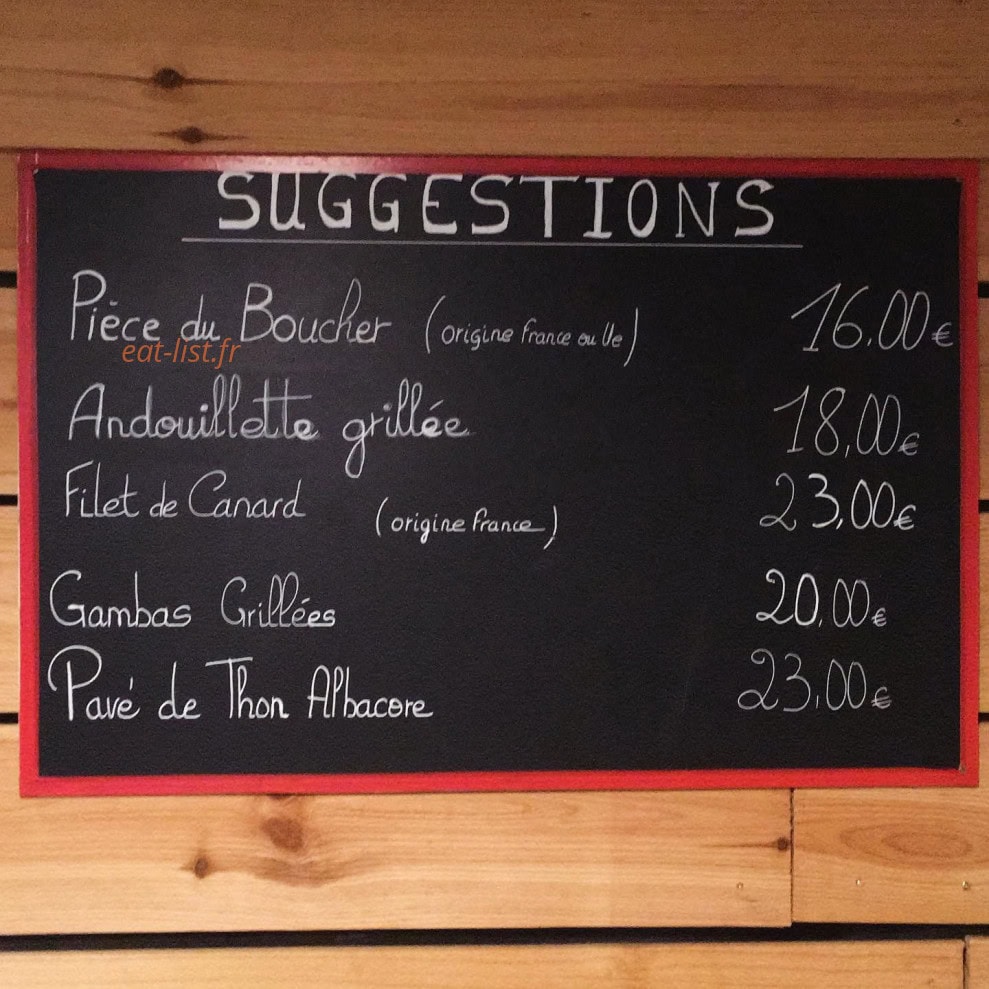 SUGGESTIONS
Pièce du Boucher (origine france ou Ue) 16.00€
eat-list.fr
Andouillette grillée 18,00€
Filet de Canard (origine france) 23,00€
Gambas Grillées 20,00€
Pavé de Thon Albacore 23,00€